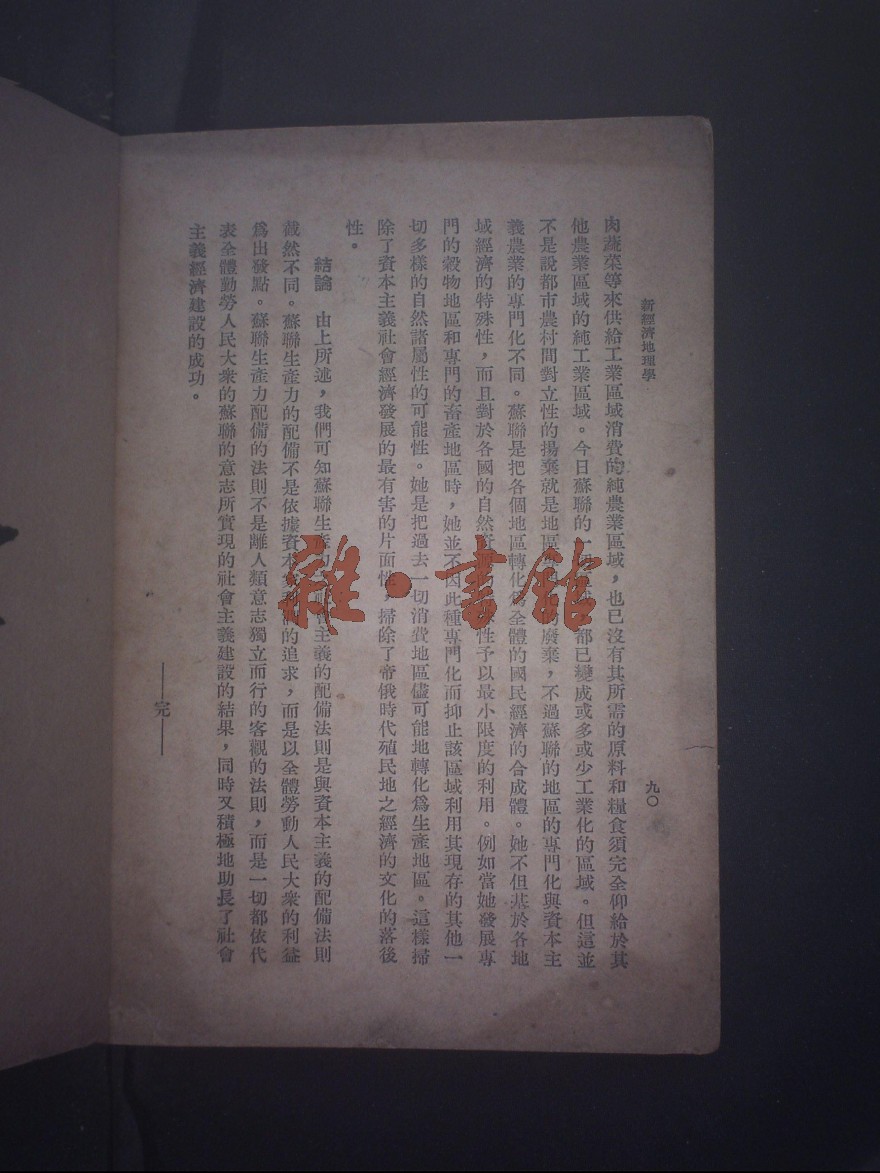 新經濟地理學
九〇
肉蔬菜等來供給工業區域消費的純農業區域，也已沒有其所需的原料和糧食須完全仰給於其
他農業區域的純工業區域。今日蘇聯的一都已變成或多或少工業化的區域。但這並
不是說都市農村間對立性的揚棄就是地區廢棄，不過蘇聯的地區的專門化與資本主
義農業的專門化不同。蘇聯是把各個地區轉化爲全體的國民經濟的合成體。她不但基於各地
域經濟的特殊性，而且對於各國的自然性予以最小限度的利用。例如當她發展專
門的穀物地區和專門的畜產地區時，她並不因此種專門化而抑止該區域利用其現存的其他一
切多樣的自然諸屬性的可能性。她是把過去一切消費地區儘可能地轉化爲生產地區。這樣掃
除了資本主義社會經濟發展的最有害的片面性，掃除了帝俄時代殖民地之經濟的文化的落後
性。
結論　由上所述，我們可知蘇聯生產力主義的配備法則是與資本主義的配備法則
截然不同。蘇聯生產力的配備不是依據資本的追求，而是以全體勞動人民大衆的利益
爲出發點。蘇聯生產力配備的法則不是離人類意志獨立而行的客觀的法則，而是一切都依代
表全體勤勞人民大衆的蘇聯的意志所實現的社會主義建設的結果，同時又積極地助長了社會
主義經濟建設的成功。
——完——
雜·書館